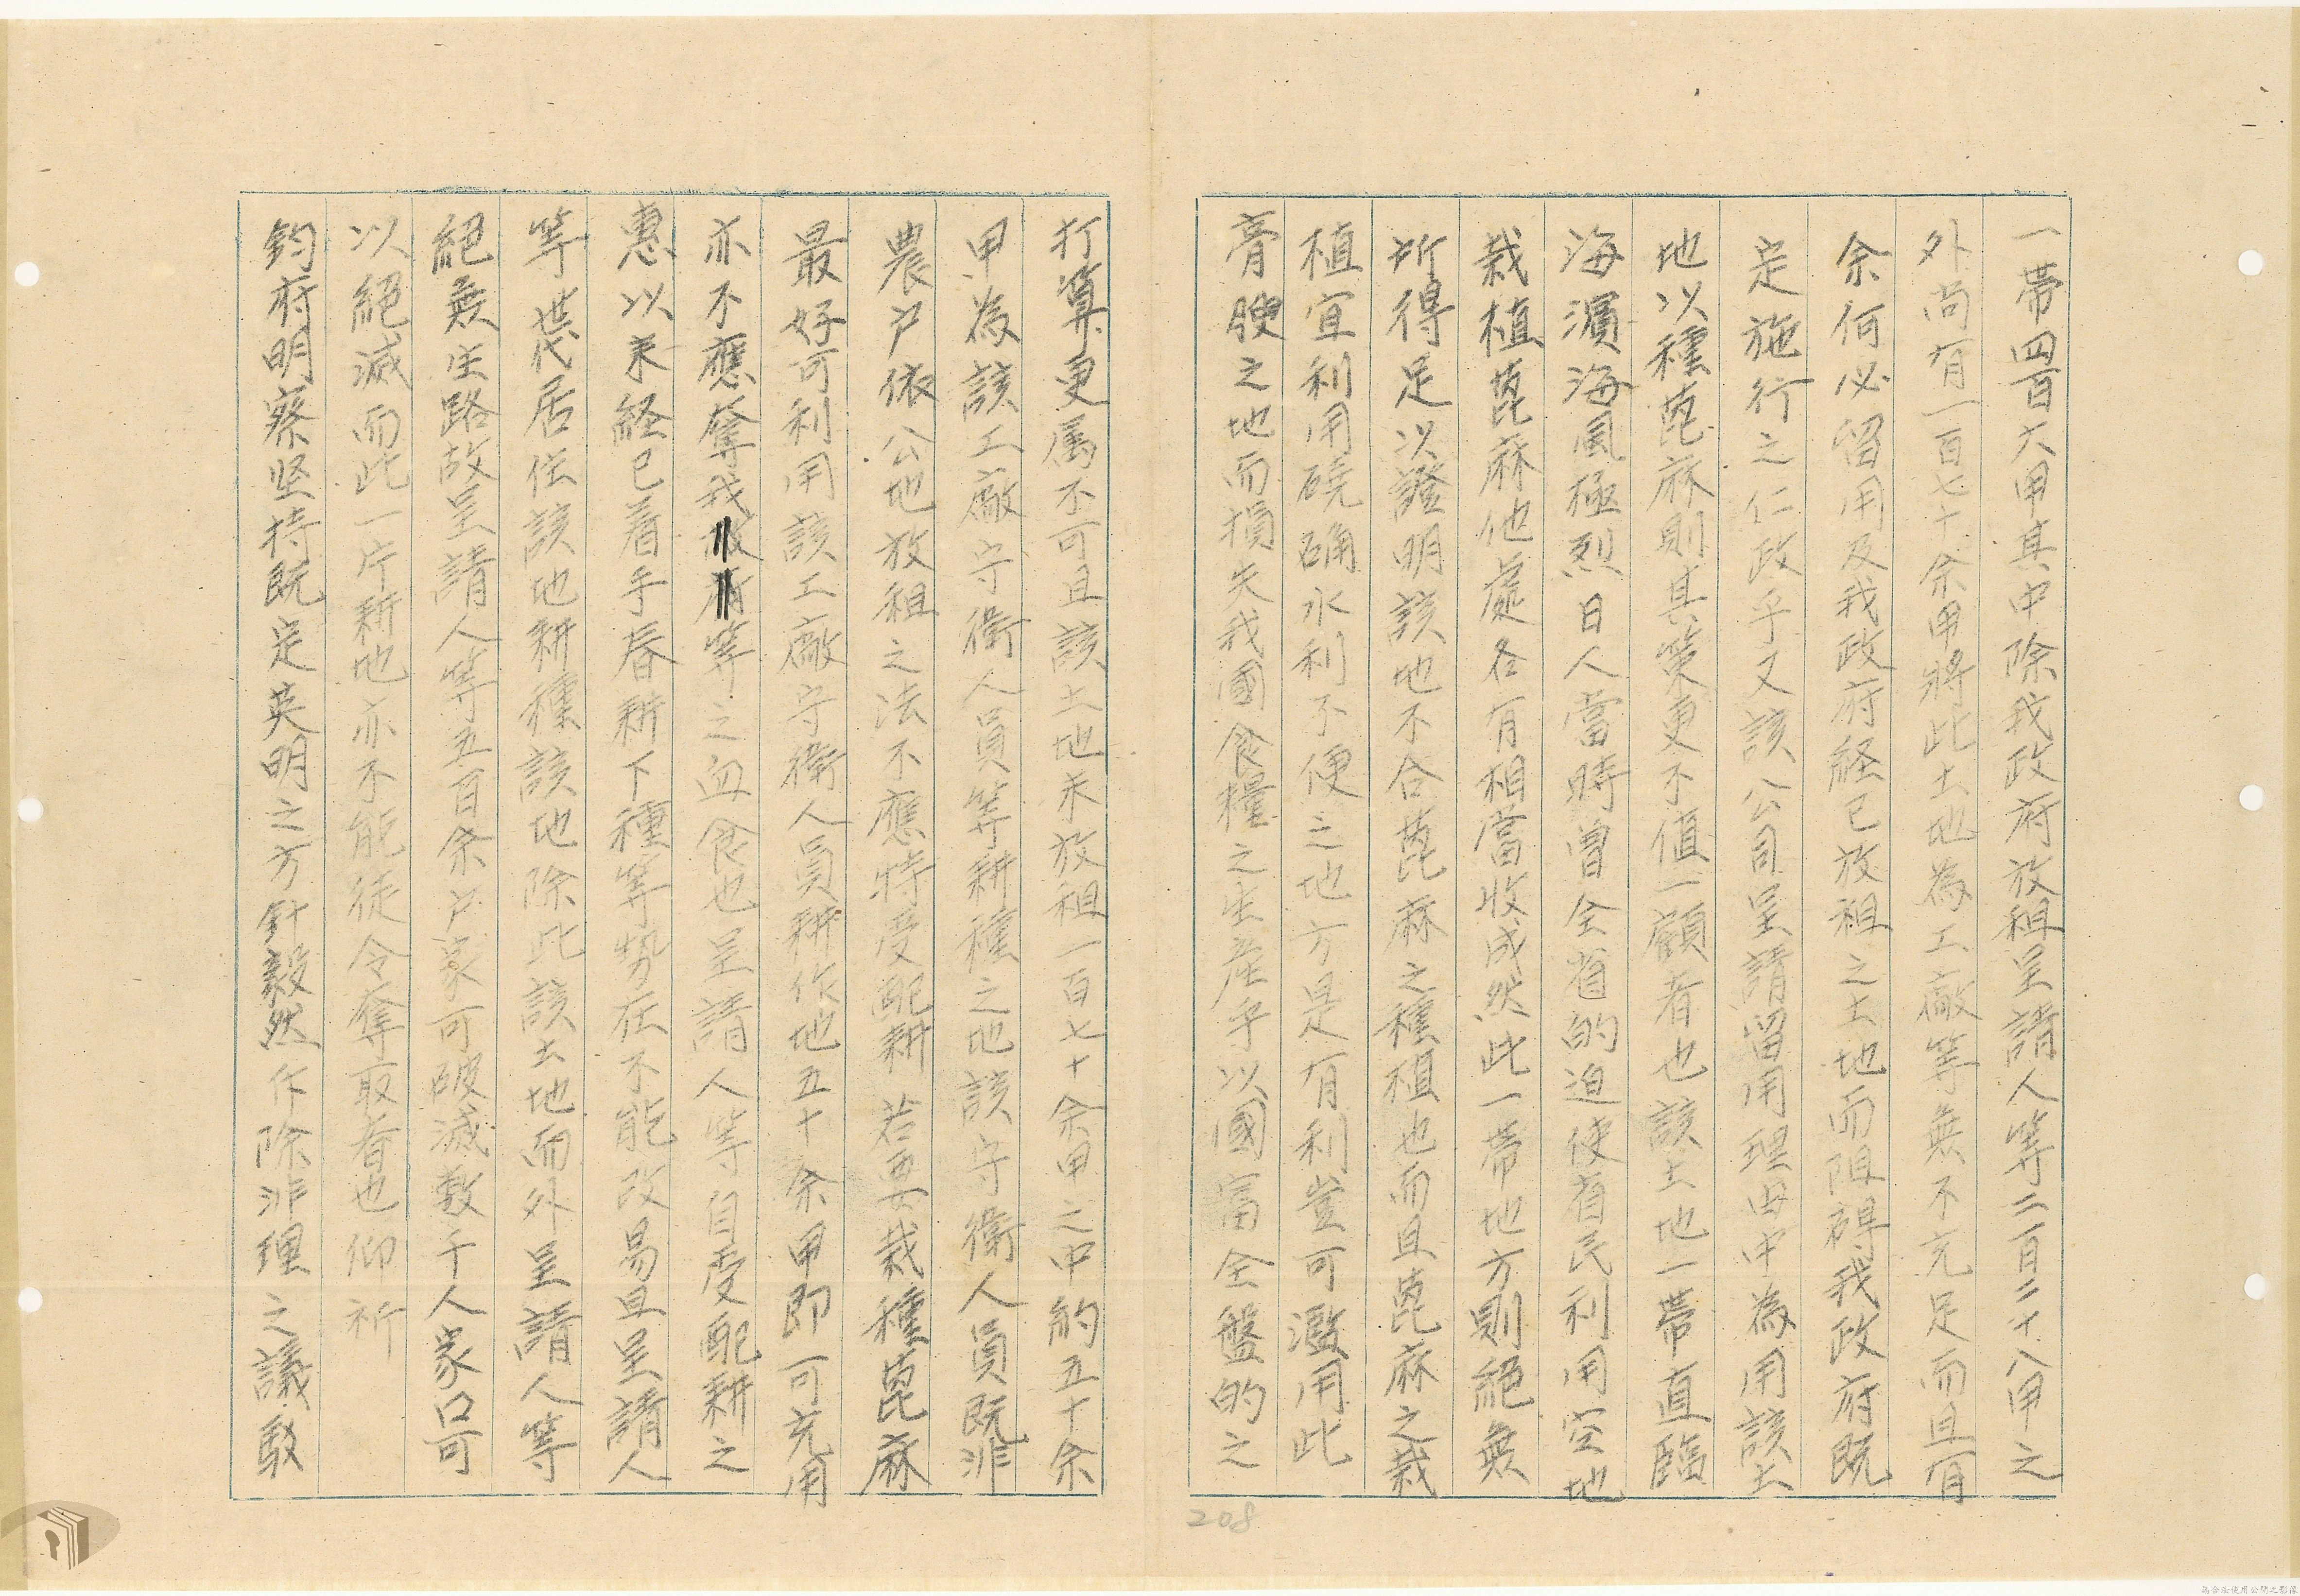 一帶四百六甲其中除我政府放租呈請人等二百二十八甲之
外尚有一百七十余甲將此土地為工廠等無不充足而且有
余何必留用及我政府経已放租之土地而阻碍我政府既
定施行之仁政乎又該公司呈請留用理由中為用該土
地以種萞麻則其策更不值一顧者也該土地一帶直臨
海濱海風極烈日人當時曽全省的迫使省民利用空地
栽植萞麻他處各有相當收成然此一帶地方則絕無
所得足以證明該地不合萞麻之種植也而且萞麻之栽
植宜利用磽确水利不便之地方是有利豈可濫用此
膏腴之地而損失我國食糧之生產乎以國富全盤的之
打算更属不可且該土地未放租一百七十余甲之中約五十余
甲為該工廠守衛人員等耕種之地該守衛人員既非
農户依公地放租之法不應特受配耕若要栽種萞麻
最好可利用該工廠守衛人員耕作地五十余甲即可充用
亦不應奪我等之血食也呈請人等自受配耕之
惠以來経已着手春耕下種等势在不能改易且呈請人
等世代居住該地耕種該地除此該土地而外呈請人等
絕無生路故呈請人等五百余户家可破滅数千人家口可
以絕滅而此一片耕地亦不能徒令奪取者也仰祈
鈞府明察坚持既定英明之方針毅然仵除非理之議駁
208
請合法使用公開之影像